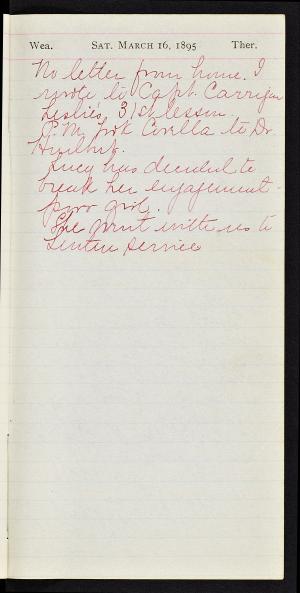 Wea. SAT. MARCH 16, 1895 Ther.
No letter from home. I
wrote to Capt. Carrigan
Leslie's, 31st lesson.
P.M. took Corella to Dr
Lucy has decided to
break her engagement -
poor girl.
She went with us to
Lenten service